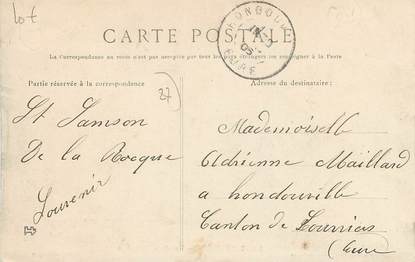 Lot
CARTE POSTALE
La Correspondance au verso n'est pas acceptée par tous les pays étrangers (Se renseigner à la Poste)
Partie réservée à la correspondance
Adresse du destinataire:
27
St Samson
De la Rocque
Souvenir
Mademoiselle
Adrienne Maillard
a hondouville
Canton de Louviers
Eure